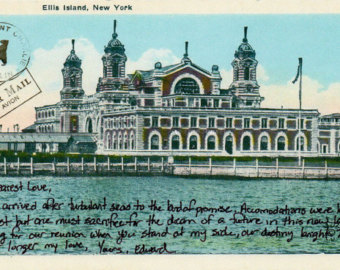 Ellis Island, New York
MAIL
PAR AVION
earest Love,
arrived after turbulant seas to the land of promise, Accomodations were
but one must sacrifice for the dream of a future in this new l
g for our reunion when you stand at my side, our destiny bright
longer my love, Yours, Edward